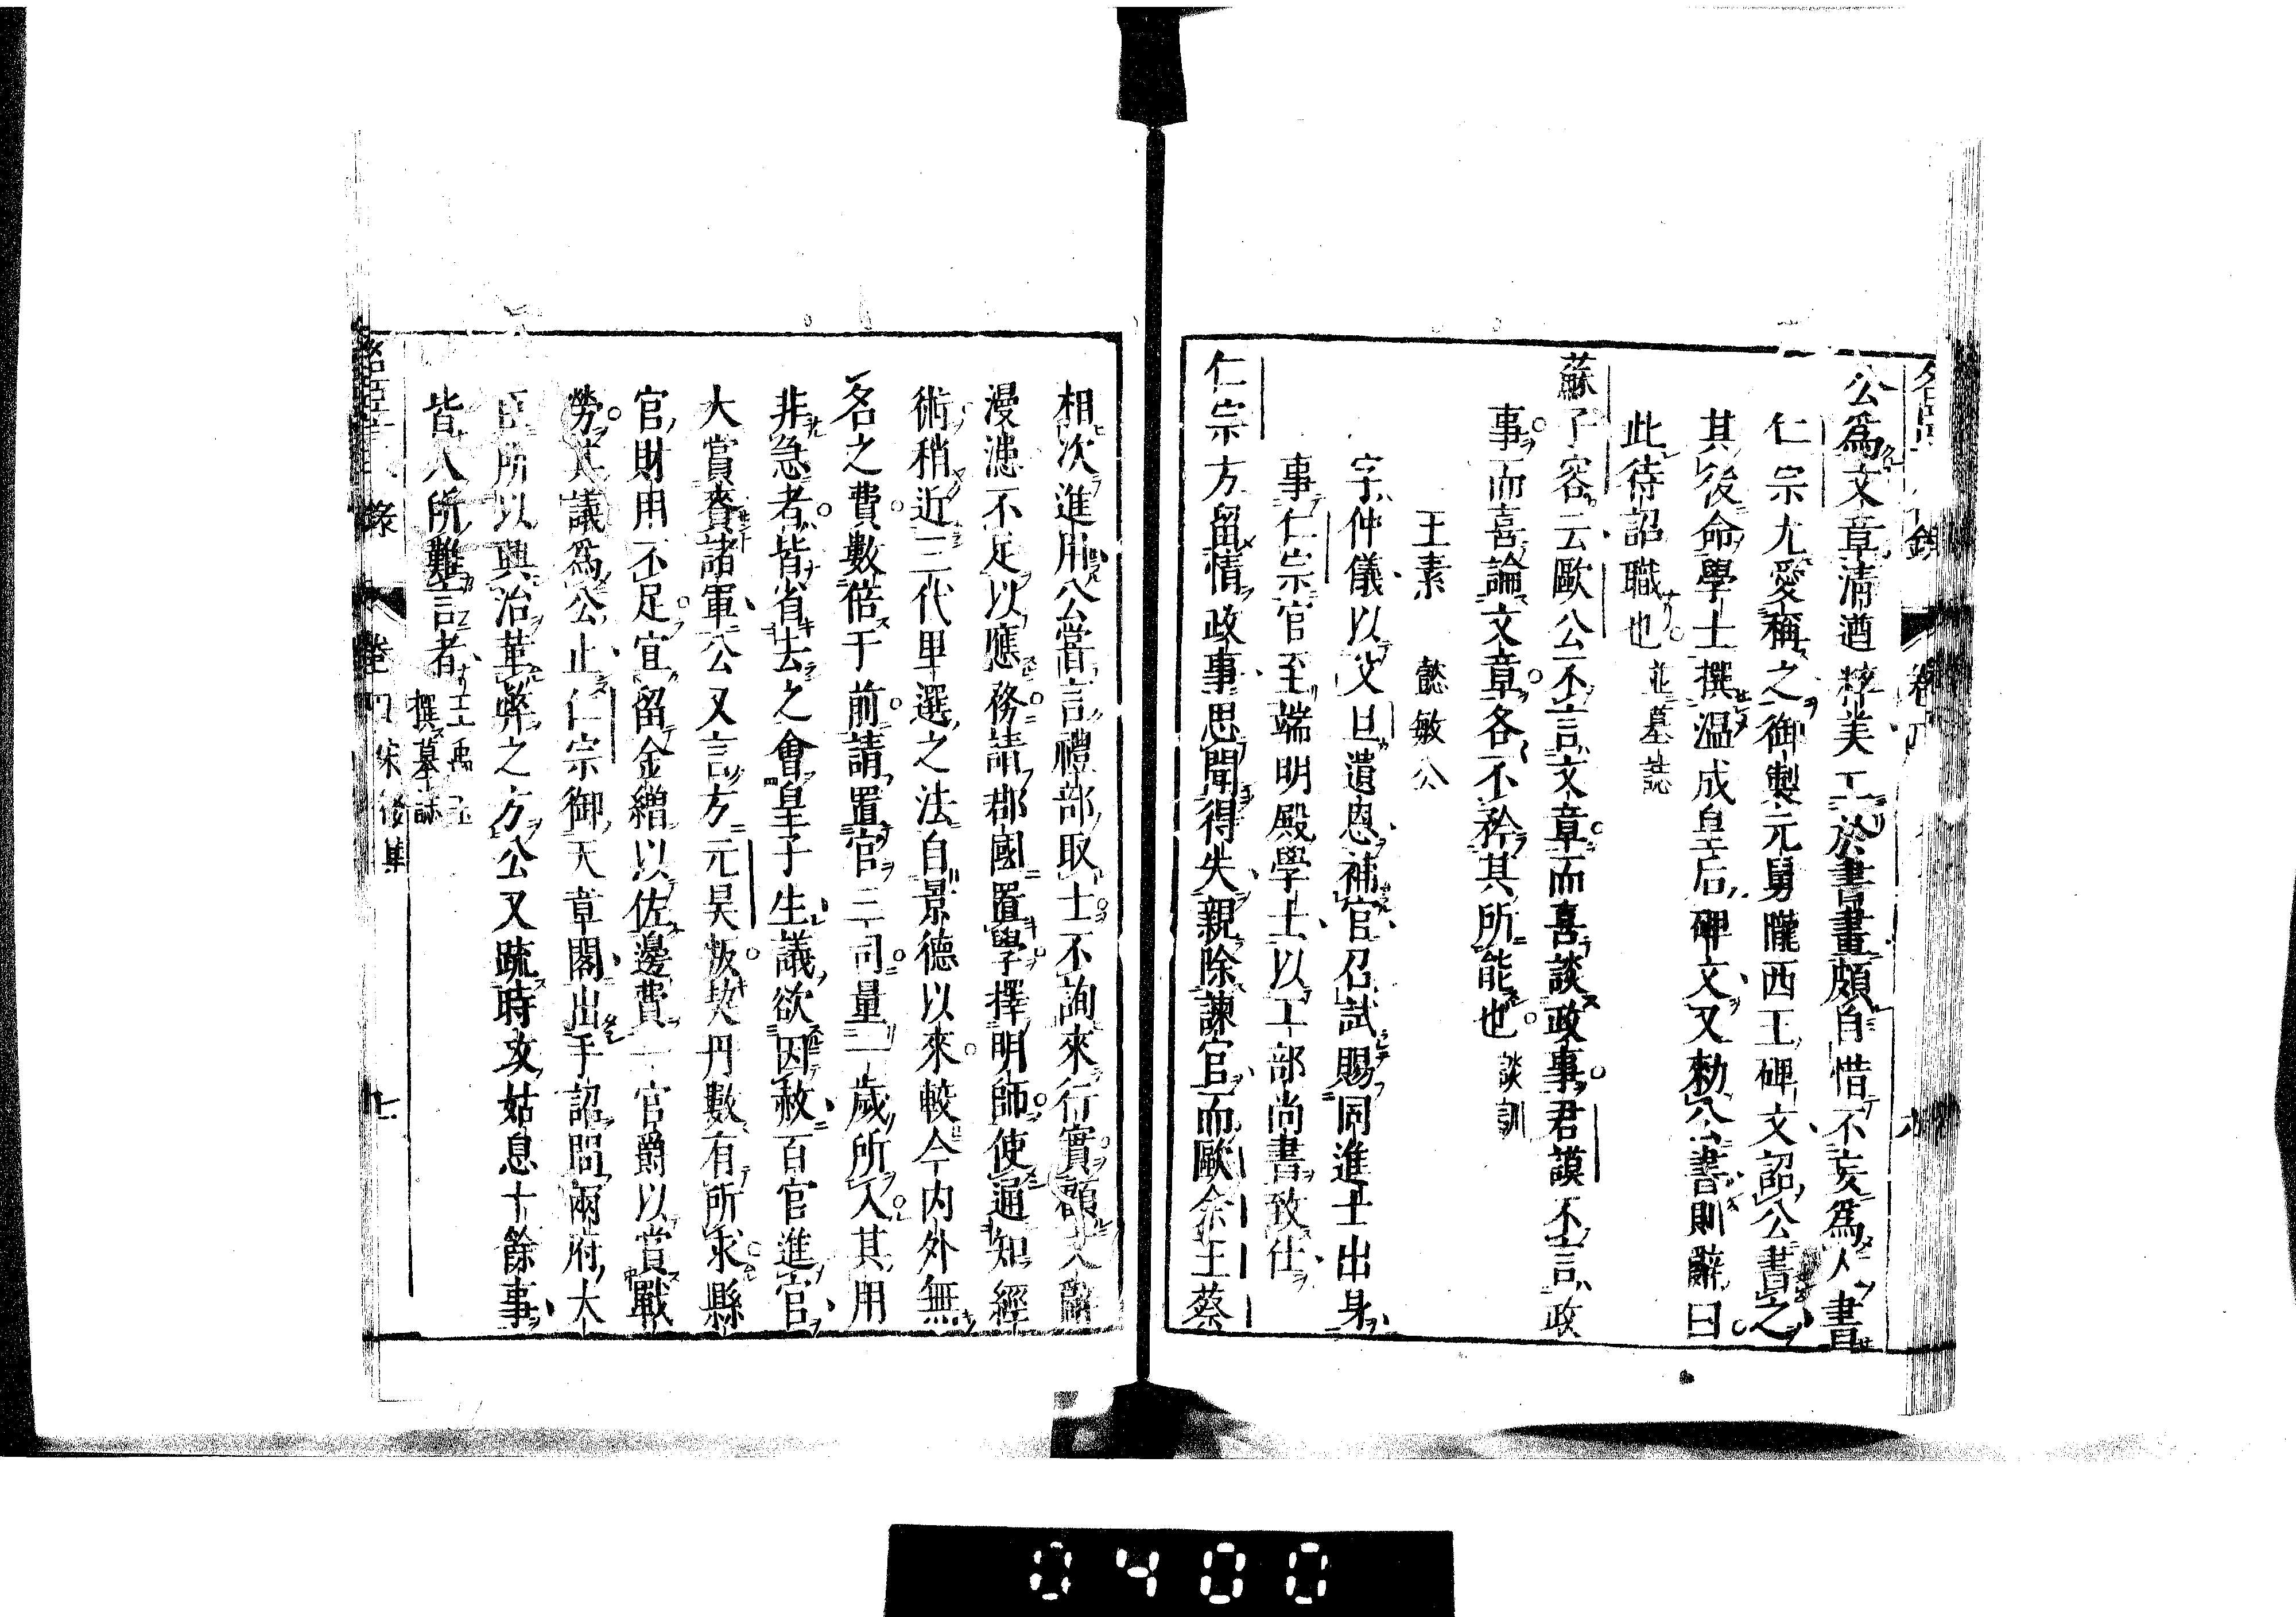 公爲文章淸遒粹美工於書畫頗自惜不妄爲人書
仁宗尤愛稱之御製元舅隴西王碑文詔公書之
其後命學士撰温成皇后碑文又勅公書則辭曰
此待詔職也並墓誌
蘇子容云歐公不言文章而喜談政事君謨不言政
事而喜論文章各不矜其所能也談訓
王素　懿敏公
字仲儀以父旦遺恩補官召試賜同進士出身
事仁宗官至端明殿學士以工部尚書致仕
仁宗方留情政事思聞得失親除諫官而歐余王蔡
相次進用公嘗言禮部取士不詢來行實顓文辭
漫漶不足以應務請郡國置學擇明師使通知經
術稍近三代里選之法自景德以來較今內外無
名之費數倍于前請置官三司量一歲所入其用
非急者皆省去之會皇子生議欲因赦百官進官
大賞賚諸軍公又言方元昊叛契丹數有所求縣
官財用不足宜留金繒以佐邊費一官爵以賞戰
勞其議爲公止仁宗御天章閣出手詔問兩府大
臣所以興治革弊之方公又疏時政姑息十餘事
皆人所難言者王禹玉
撰墓誌
名臣言　錄　卷四　宋後集　七